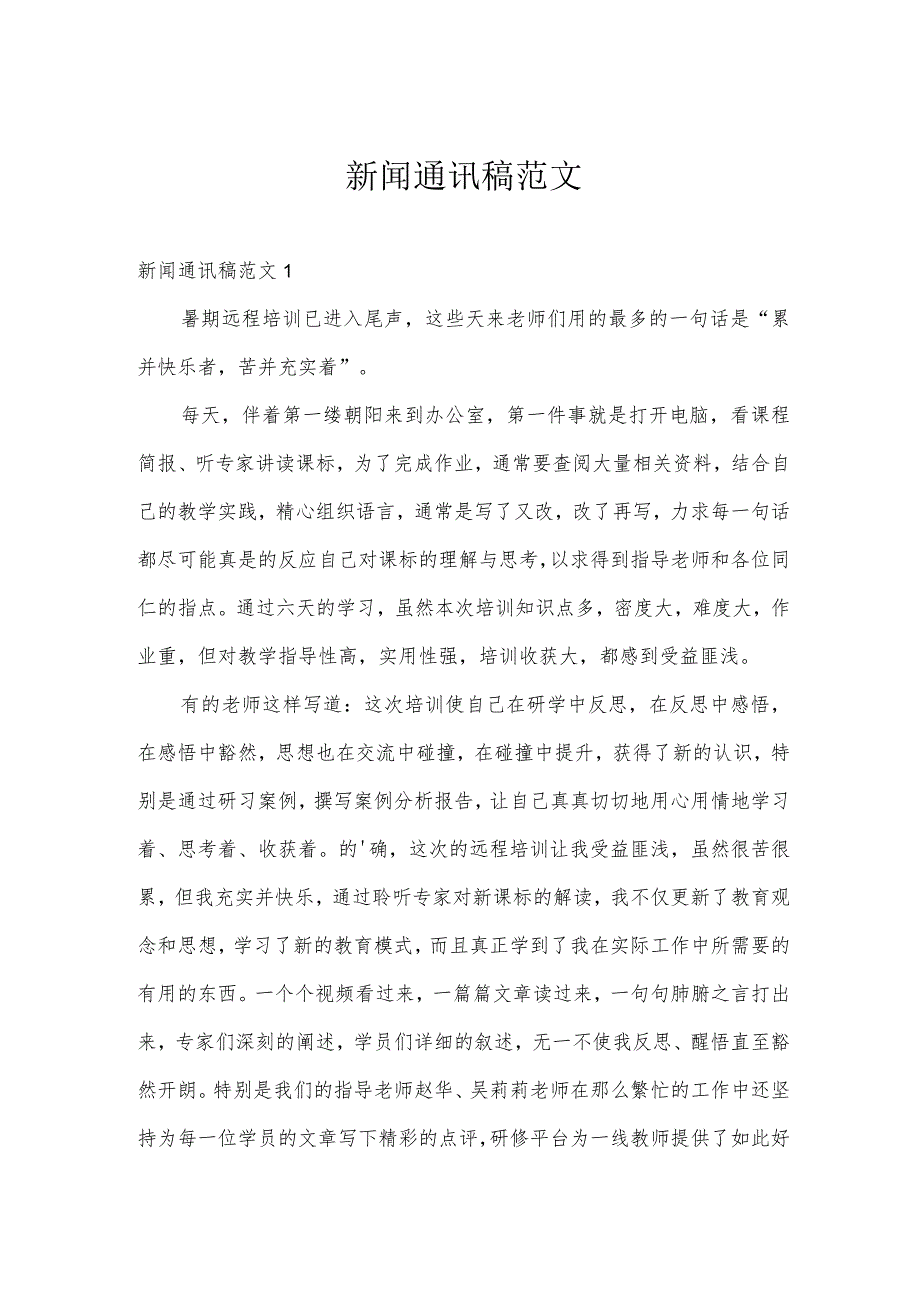 新闻通讯稿范文
新闻通讯稿范文1
暑期远程培训已进入尾声，这些天来老师们用的最多的一句话是“累
并快乐者，苦并充实着”。
每天，伴着第一缕朝阳来到办公室，第一件事就是打开电脑，看课程
简报、听专家讲读课标，为了完成作业，通常要查阅大量相关资料，结合自
己的教学实践，精心组织语言，通常是写了又改，改了再写，力求每一句话
都尽可能真是的反应自己对课标的理解与思考，以求得到指导老师和各位同
仁的指点。通过六天的学习，虽然本次培训知识点多，密度大，难度大，作
业重，但对教学指导性高，实用性强，培训收获大，都感到受益匪浅。
有的老师这样写道：这次培训使自己在研学中反思，在反思中感悟，
在感悟中豁然，思想也在交流中碰撞，在碰撞中提升，获得了新的认识，特
别是通过研习案例，撰写案例分析报告，让自己真真切切地用心用情地学习
着、思考着、收获着。的'确，这次的远程培训让我受益匪浅，虽然很苦很
累，但我充实并快乐，通过聆听专家对新课标的解读，我不仅更新了教育观
念和思想，学习了新的教育模式，而且真正学到了我在实际工作中所需要的
有用的东西。一个个视频看过来，一篇篇文章读过来，一句句肺腑之言打出
来，专家们深刻的阐述，学员们详细的叙述，无一不使我反思、醒悟直至豁
然开朗。特别是我们的指导老师赵华、吴莉莉老师在那么繁忙的工作中还坚
持为每一位学员的文章写下精彩的点评，研修平台为一线教师提供了如此好